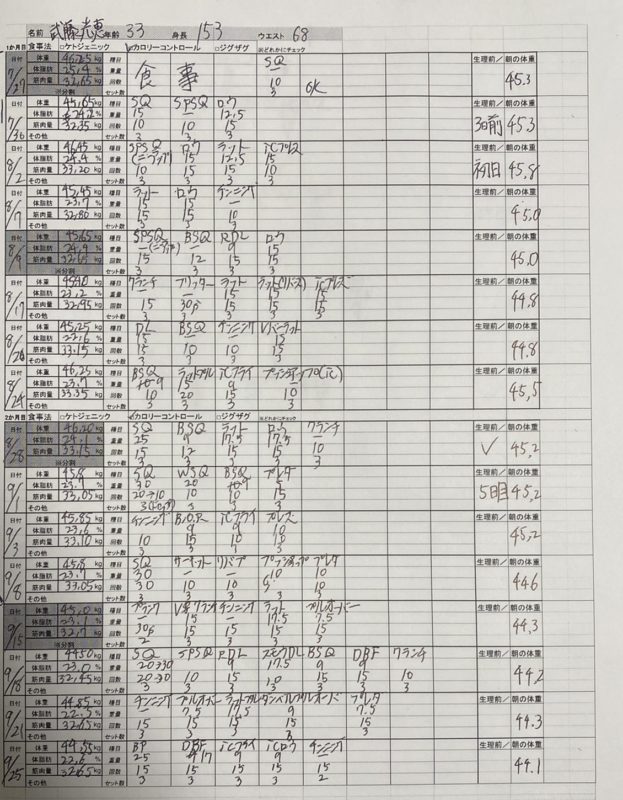 名前 武藤光恵 年齢 33 身長 153 ウエスト 68
1か月目 食事法 □ケトジェニック ☑カロリーコントロール □ジグザグ ※どれかにチェック 生理前/朝の体重
日付 7/27 体重 46.25 kg 種目 食事 SQ
体脂肪 25.4 % 重量 —
筋肉量 32.65 kg 回数 10 OK 45.3
※分割 セット数 3
日付 7/30 体重 45.65 kg 種目 SQ SPSQ ロウ 生理前/朝の体重
体脂肪 24.2 % 重量 15 — 12.5
筋肉量 32.35 kg 回数 10 10 15 3日前 45.3
その他 セット数 3 3 3
日付 8/2 体重 46.45 kg 種目 SPSQ ロウ ラット iCプレス 生理前/朝の体重
体脂肪 24.4 % 重量 15 12.5 15
筋肉量 33.20 kg 回数 10 15 15 10 初日 45.8
その他 セット数 3 3 3 3
日付 8/7 体重 45.45 kg 種目 ラット ロウ チンニング 生理前/朝の体重
体脂肪 23.7 % 重量 15 15 —
筋肉量 32.80 kg 回数 15 15 10 45.0
その他 セット数 3 3 3
日付 8/9 体重 45.65 kg 種目 SPSQ BSQ RDL ロウ 生理前/朝の体重
体脂肪 24.4 % 重量 — — 9 15
筋肉量 32.65 kg 回数 15 12 15 15 45.0
※分割 セット数 3 3 3 3
日付 8/17 体重 kg 種目 クランチ ラット ラット(リバース) iCプレス 生理前/朝の体重
体脂肪 23.2 % 重量 — — 15 15 15
筋肉量 32.95 kg 回数 15 30秒 15 15 15 44.8
その他 セット数 3 3 3 3 3
日付 8/20 体重 45.25 kg 種目 DL BSQ チンニング Vバーラット 生理前/朝の体重
体脂肪 23.6 % 重量 15 — — 15
筋肉量 33.15 kg 回数 15 10 10 15 44.8
その他 セット数 3 3 3 3
日付 8/24 体重 46.25 kg 種目 BSQ ラットプル iCフライ プッシュアップ(iC) 生理前/朝の体重
体脂肪 23.7 % 重量 15 9 —
筋肉量 33.35 kg 回数 10 20 15 10 45.5
その他 セット数 3 3 3 3
2か月目 食事法 □ケトジェニック ☑カロリーコントロール □ジグザグ ※どれかにチェック
日付 8/28 体重 46.20 kg 種目 SQ BSQ ラット ロウ クランチ 生理前/朝の体重
体脂肪 24.1 % 重量 25 9 17.5 17.5 —
筋肉量 33.15 kg 回数 15 12 15 15 10 ✓ 45.2
※分割 セット数 3 3 3 3 3
日付 9/1 体重 45.8 kg 種目 SQ WSQ BSQ プレタ 生理前/朝の体重
体脂肪 23.7 % 重量 30 20
筋肉量 33.05 kg 回数 20→10 10 10 15 5日目 45.2
その他 セット数 3 3 3
日付 9/3 体重 45.85 kg 種目 チンニング B.O.R iCフライ プレス 生理前/朝の体重
体脂肪 23.6 % 重量 — 9 9 10
筋肉量 33.10 kg 回数 10 15 10 10 45.2
その他 セット数 3 3 3 3
日付 9/8 体重 45.8 kg 種目 SQ プッシュアップ プレタ 生理前/朝の体重
体脂肪 23.7 % 重量 30 — — 10 10
筋肉量 33.05 kg 回数 30 10 10 10 44.6
その他 セット数 3 3 3 3 3
日付 9/15 体重 45.0 kg 種目 プランク V字クランチ チンニング ラット プルオーバー 生理前/朝の体重
体脂肪 23.1 % 重量 — — — 17.5 7.5
筋肉量 32.7 kg 回数 30秒 15 15 15 15 44.3
※分割 セット数 2 3 3 3 3
日付 9/18 体重 44.50 kg 種目 SQ SPSQ RDL スモウDL BSQ DBF クランチ 生理前/朝の体重
体脂肪 23.0 % 重量 20→30 — 9 17.5 9 9 —
筋肉量 32.45 kg 回数 20→30 10 15 10 15 15 10 44.2
その他 セット数 3 3 3 3 3 3 3
日付 9/21 体重 44.85 kg 種目 チンニング プルオーバー ラットプル ダンベルプルオーバー プレタ 生理前/朝の体重
体脂肪 22.3 % 重量 — 7.5 17.5 9 7.5
筋肉量 32.65 kg 回数 15 15 15 15 15 44.3
その他 セット数 3 3 3 3 3
日付 9/25 体重 44.55 kg 種目 BP DBF iCフライ iCロウ チンニング 生理前/朝の体重
体脂肪 22.6 % 重量 25 9 9 —
筋肉量 32.65 kg 回数 15 15 15 15 15 44.1
その他 セット数 3 3 3 3 2